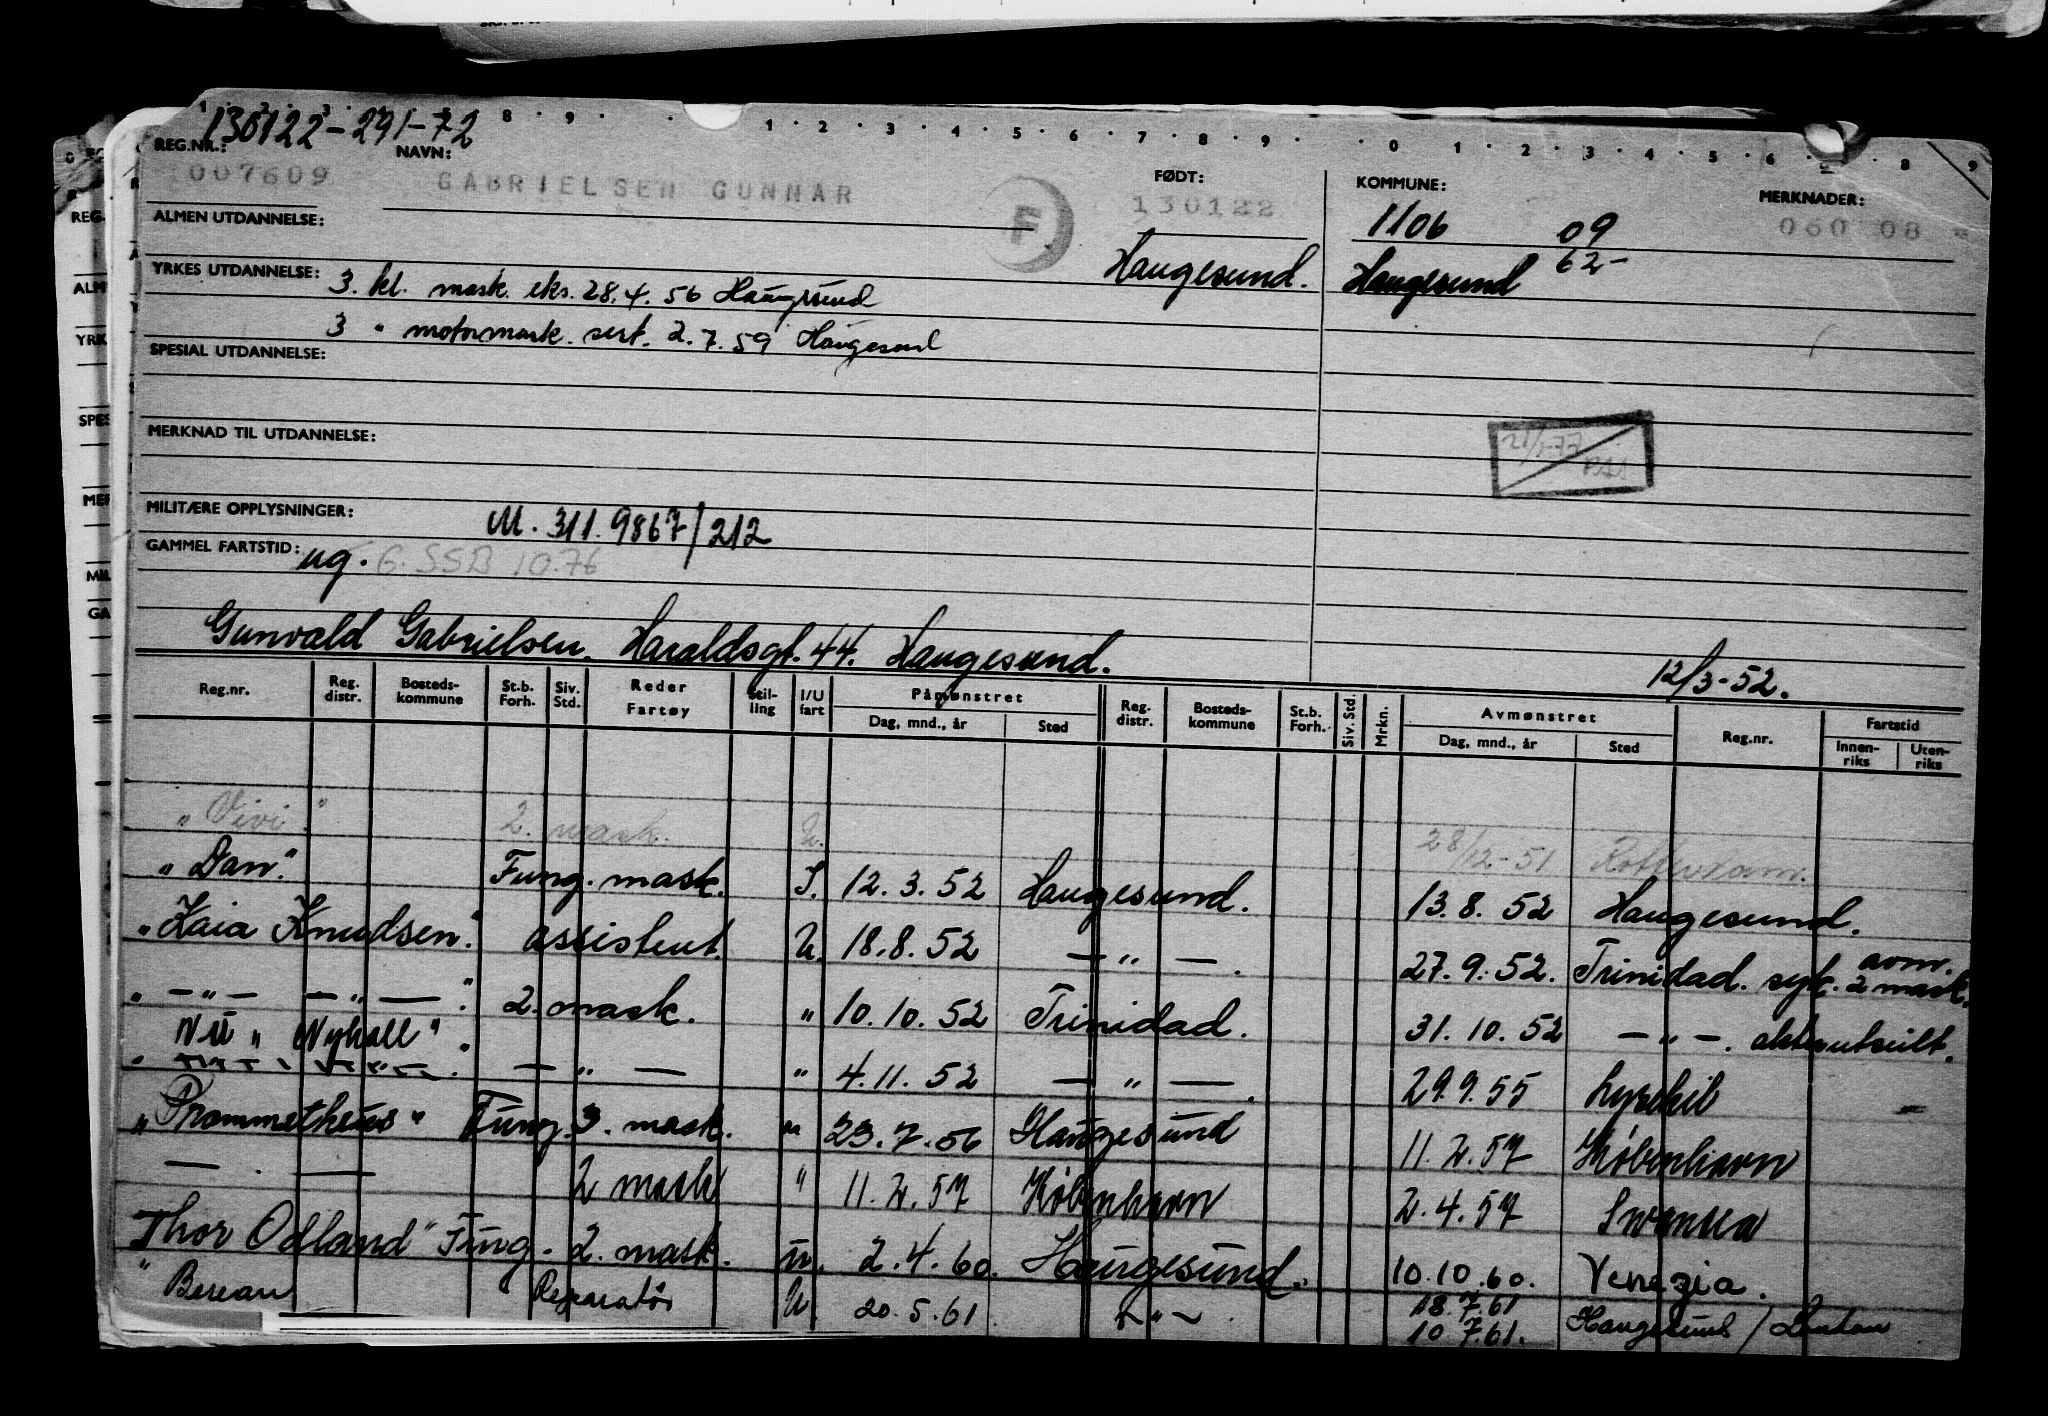 130122-291-72
REG.NR.: NAVN: FØDT: KOMMUNE: MERKNADER:
007609 GABRIELSEN GUNNAR F 130122 1106 09 060 08
ALMEN UTDANNELSE:
Haugesund. Haugesund 62-
YRKES UTDANNELSE: 3. kl. mask. eks. 28.4.56 Haugesund
3 " motormask. sert. 2.7.59 Haugesund
SPESIAL UTDANNELSE:
MERKNAD TIL UTDANNELSE:
MILITÆRE OPPLYSNINGER: M. 311.9867/212
GAMMEL FARTSTID: ug. G. SSB 10.76
Gunvald Gabrielsen. Haraldsgt. 44. Haugesund.
12/3-52.
Reg.nr. Reg. distr. Bosteds-kommune St.b. Forh. Siv. Std. Reder Fartøy Stil-ling I/U fart Påmønstret Dag, mnd., år Sted Reg. distr. Bosteds-kommune St.b. Forh. Siv. Std. Mrkn. Avmønstret Dag, mnd., år Sted Reg.nr. Fartstid Innen-riks Uten-riks
"Vivi". 2. mask. U. 28/12-51 Rotterdam.
"Dan". Fung. mask. I. 12.3.52 Haugesund. 13.8.52 Haugesund.
"Kaia Knudsen". assistent. U. 18.8.52 — " —. 27.9.52. Trinidad. syk. avm. 2 mask.
" — " — — " — ". 2. mask. " 10.10.52 Trinidad. 31.10.52 — " —. skibsutskilt.
"Nyhall" — " — " 4.11.52 — " —. 29.9.55 Lysekil
"Prommetheus" Fung. 3. mask. " 23.7.56 Haugesund 11.2.57 København
— — 2 mask " 11.2.57 København 2.4.57 Swansea
Thor Odland" Fung. 2. mask. u. 2.4.60. Haugesund. 10.10.60. Venezia.
"Berean Reparatør U 20.5.61 — " — 18.7.61
10.7.61. Haugesund /